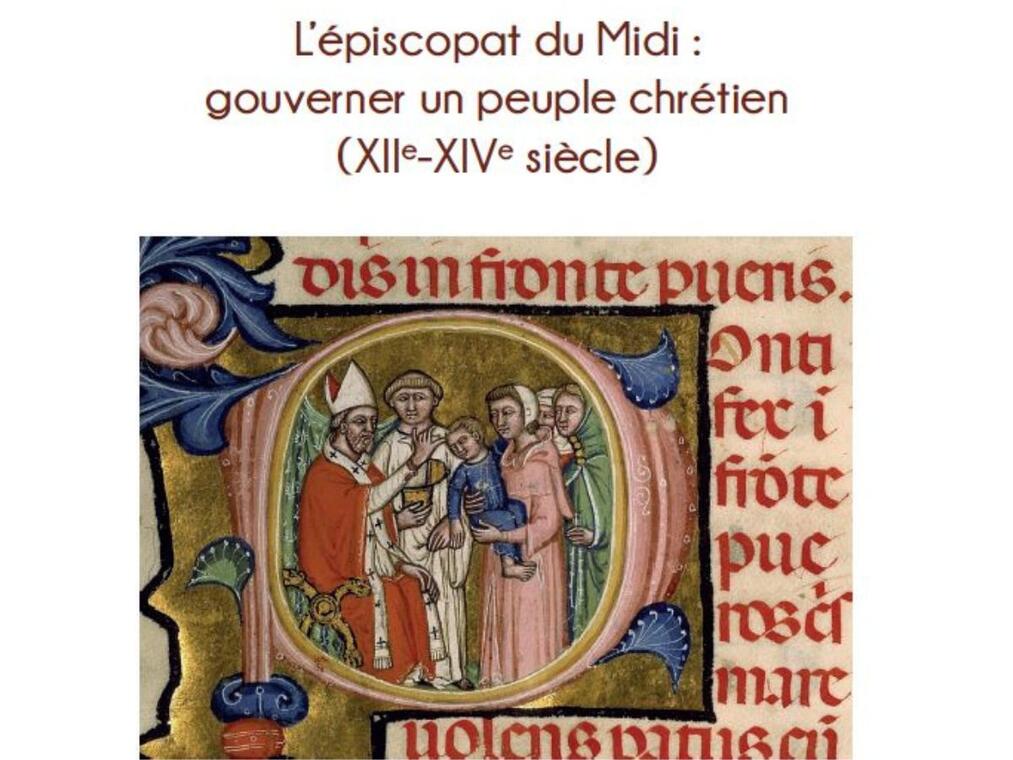 L'épiscopat du Midi :
gouverner un peuple chrétien
(XIIe-XIVe siècle)
dis in fronte pueris.
Onti
fex i
frōte
pue
ros cs̄
mare
uolens paratus cū